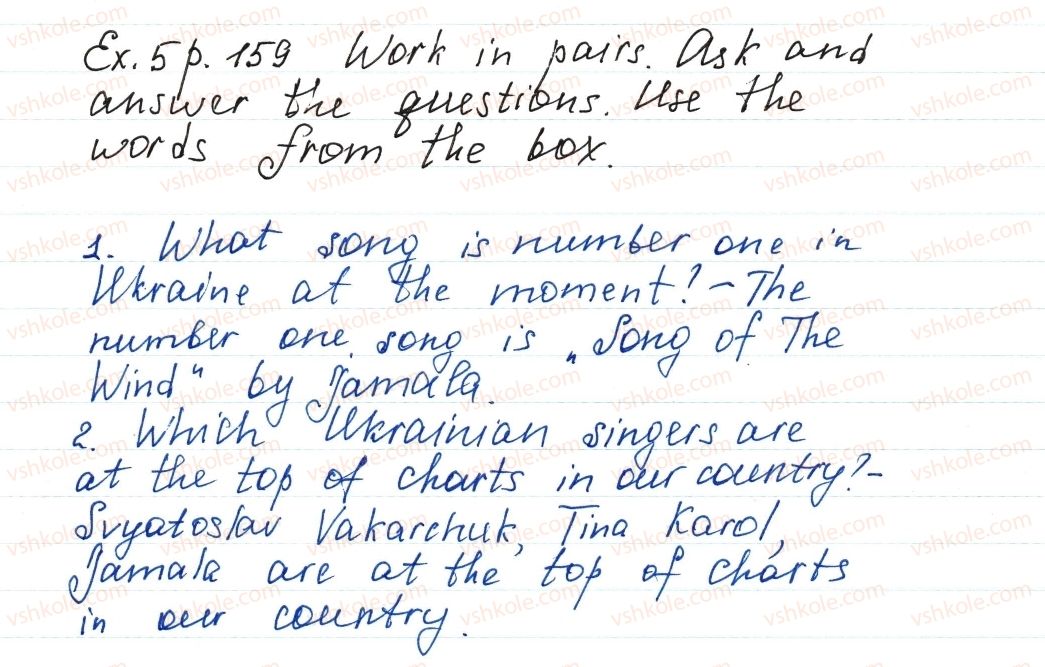 Ex. 5 p. 159 Work in pairs. Ask and
answer the questions. Use the
words from the box.
1. What song is number one in
Ukraine at the moment? – The
number one song is „Song of The
Wind" by Jamala.
2. Which Ukrainian singers are
at the top of charts in our country? –
Svyatoslav Vakarchuk, Tina Karol,
Jamala are at the top of charts
in our country.